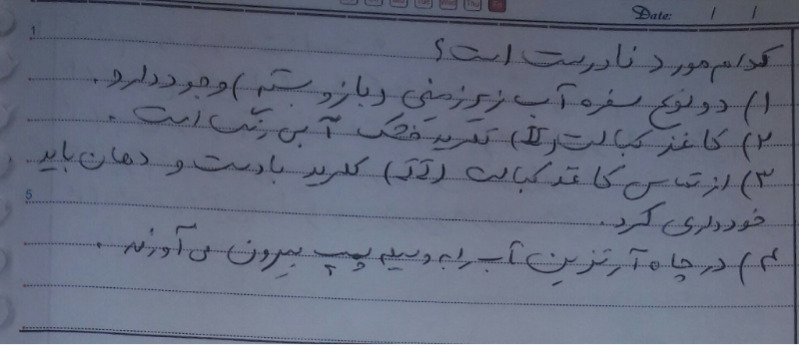 Date: / /
1
کدام مورد نادرست است؟
۱) دو نوع سفره آب زیرزمینی (باز و بسته) وجود دارد.
۲) کاغذ کبالت (II) کلرید خشک آبی رنگ است.
۳) از تماس کاغذ کبالت (II) کلرید با دست و دهان باید
5
خودداری کرد.
۴) در چاه آرتزین آب را به وسیله پمپ بیرون می آورند.